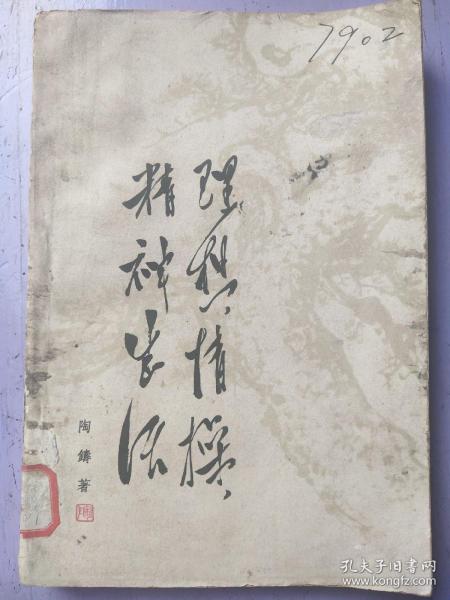 7902
理想情操
精神生活
陶鑄著
孔夫子旧书网
www.kongfz.com